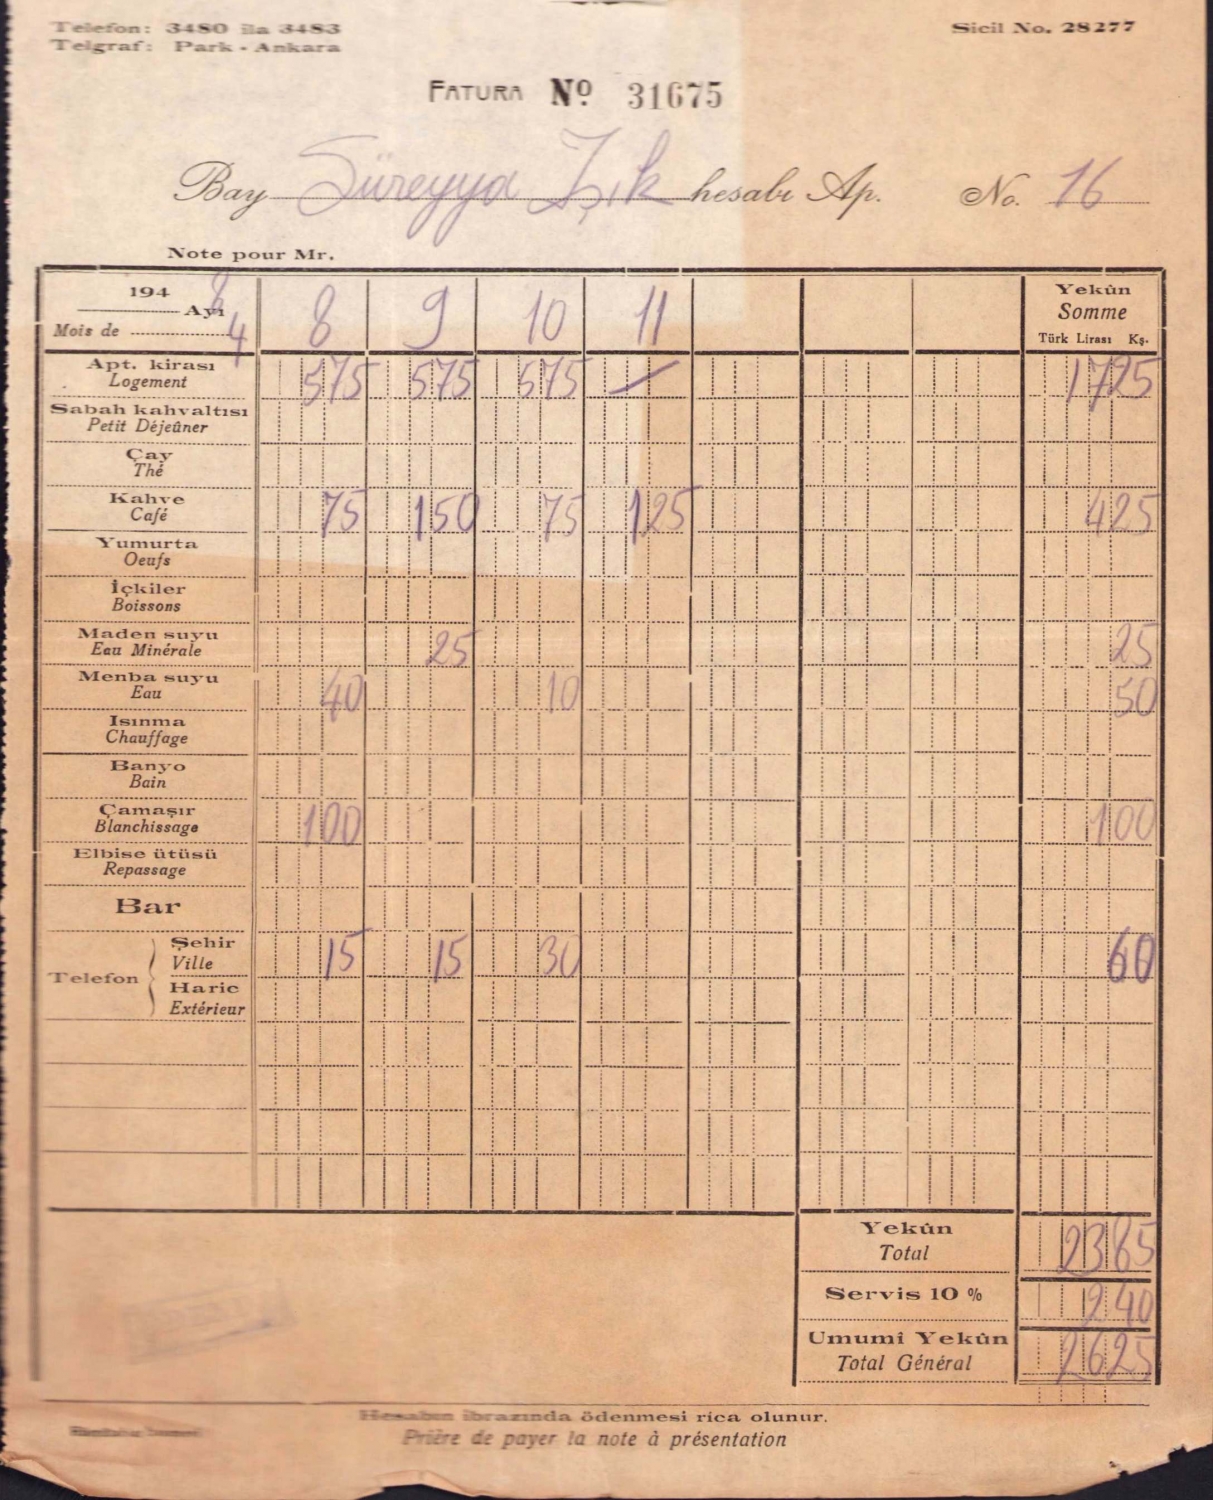 Telefon: 3480 ila 3483
Sicil No. 28277
Telgraf: Park - Ankara
FATURA No 31675
Bay Süreyya Işık hesabı Ap. No. 16
Note pour Mr.
194 Ayı 8 9 10 11 Yekûn
Somme
Mois de 4 Türk Lirası Kş.
Apt. kirası 575 575 575 — 1725
Logement
Sabah kahvaltısı
Petit Déjeûner
Çay
Thé
Kahve 75 150 75 125 425
Café
Yumurta
Oeufs
İçkiler
Boissons
Maden suyu 25 25
Eau Minérale
Menba suyu 40 10 50
Eau
Isınma
Chauffage
Banyo
Bain
Çamaşır 100 100
Blanchissage
Elbise ütüsü
Repassage
Bar
Telefon
Şehir 15 15 30 60
Ville
Haric
Extérieur
Yekûn 2385
Total
Servis 10 % 240
Umumî Yekûn 2625
Total Général
Hesabın ibrazında ödenmesi rica olunur.
Prière de payer la note à présentation